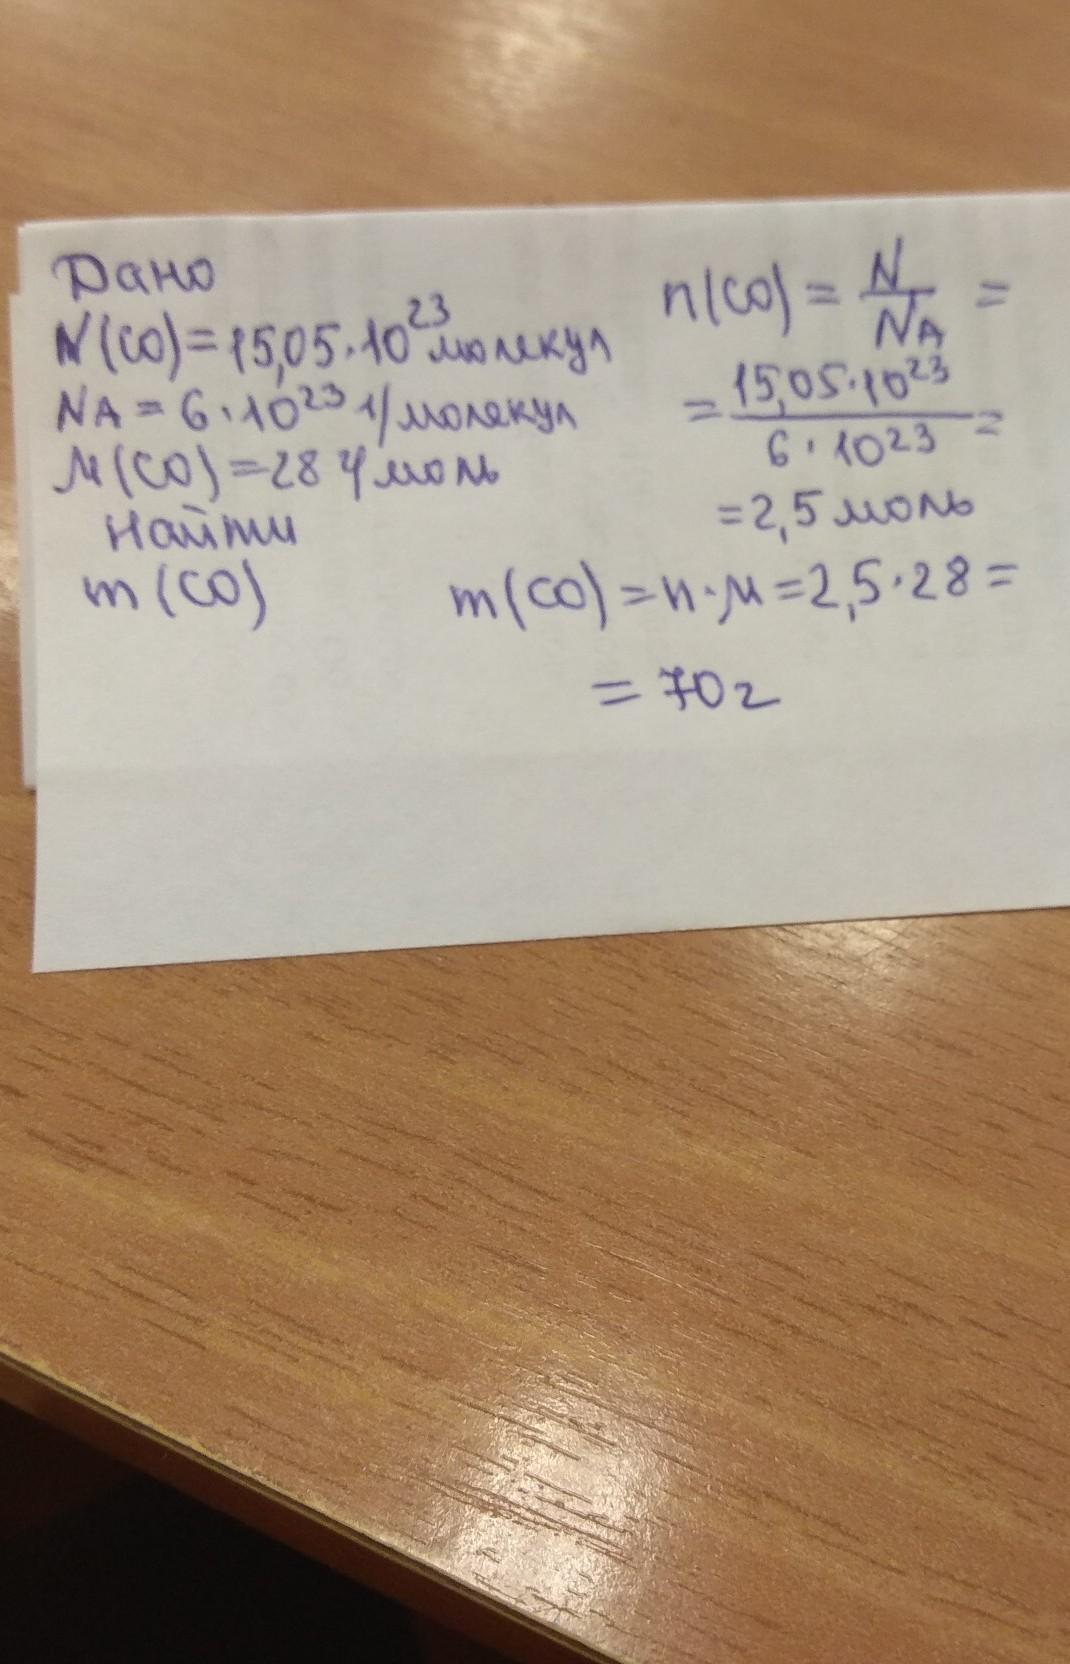 Дано
N(CO)=15,05·10²³ молекул
NA=6·10²³ 1/молекул
M(CO)=28 г/моль
Найти
m(CO)
n(CO)=N/NA=
=15,05·10²³/6·10²³=
=2,5 моль
m(CO)=n·M=2,5·28=
=70г